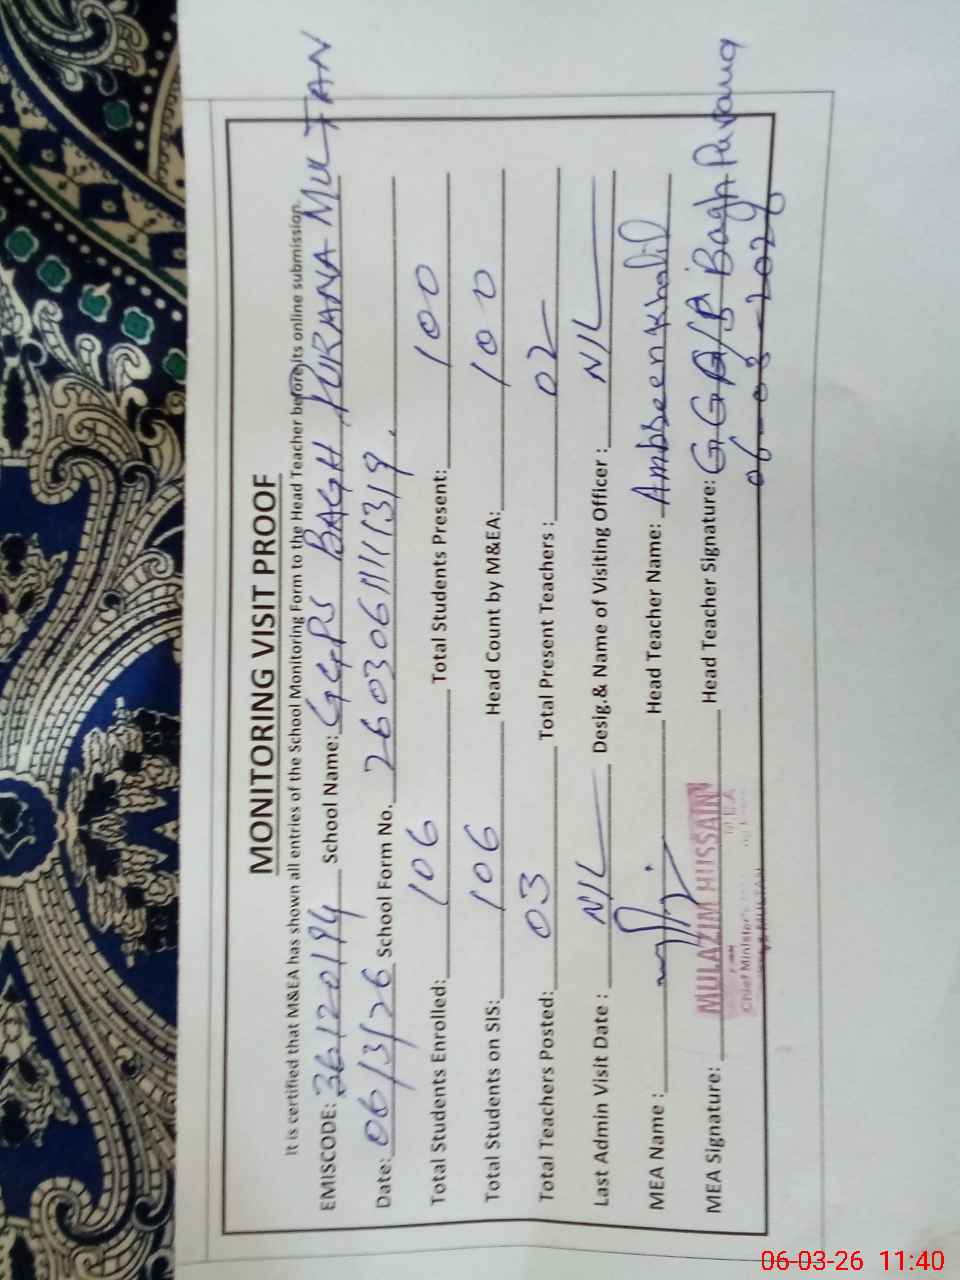 MONITORING VISIT PROOF
It is certified that M&EA has shown all entries of the School Monitoring Form to the Head Teacher before its online submission.
EMISCODE: 36120194 School Name: GGPS BAGH PURANA MULTAN
Date: 06/3/26 School Form No. 260306111111319
Total Students Enrolled: 106 Total Students Present: 100
Total Students on SIS: 106 Head Count by M&EA: 100
Total Teachers Posted: 03 Total Present Teachers : 02
Last Admin Visit Date : NIL Desig.& Name of Visiting Officer : NIL
MEA Name : Head Teacher Name: Ambreen Khalid
MEA Signature: MULAZIM HUSSAIN Head Teacher Signature: Bagh Purana
Chief Minister's
06-03-26 11:40